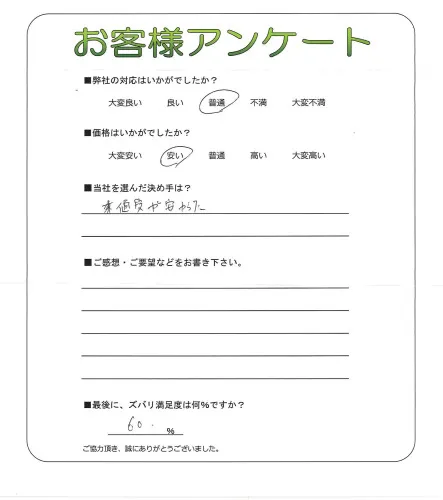 お客様アンケート
■弊社の対応はいかがでしたか？
大変良い 良い 普通 不満 大変不満
■価格はいかがでしたか？
大変安い 安い 普通 高い 大変高い
■当社を選んだ決め手は？
値段が安かった
■ご感想・ご要望などをお書き下さい。
■最後に、ズバリ満足度は何%ですか？
60. %
ご協力頂き、誠にありがとうございました。